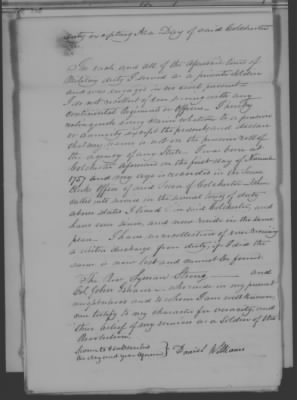 duty excepting as a Day of said Colchester
In each and all of the aforesaid tours of
Military duty I served as a private soldier
and was engaged in no
I do not recollect of ever serving with any
Continental Regiment or Officers. I hereby
relinquish every claim whatever to a pension
or annuity except the present, and declare
that my name is not on the pension roll of
the agency of any State. I was born at
Colchester aforesaid on the first day of
1757 and my age is recorded in the Town
Clerks Office of said Town of Colchester. When
called into service in the several tours of duty
above stated I lived in said Colchester, and
have ever since, and now reside in the same
place. I have no recollection of ever receiving
a written discharge from duty, if I did the
same is now lost and cannot be found.
The Rev. Lyman Strong and
Col. John Isham who reside in my present
neighborhood and to whom I am well known
can testify to my character for veracity and
their belief of my services as a Soldier of the
Revolution.
Sworn to & subscribed
day and year aforesaid } Daniel Williams